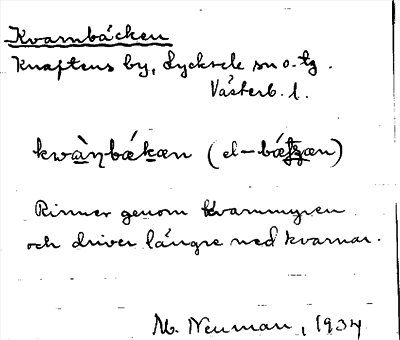 Kvarnbäcken
Knaftens by, Lycksele sn o. tg.
Västerb. l.
kwàηbækæn (el -bæ
Rinner genom Kvarnmyren
och driver längre ned kvarnar.
M. Neuman, 1934